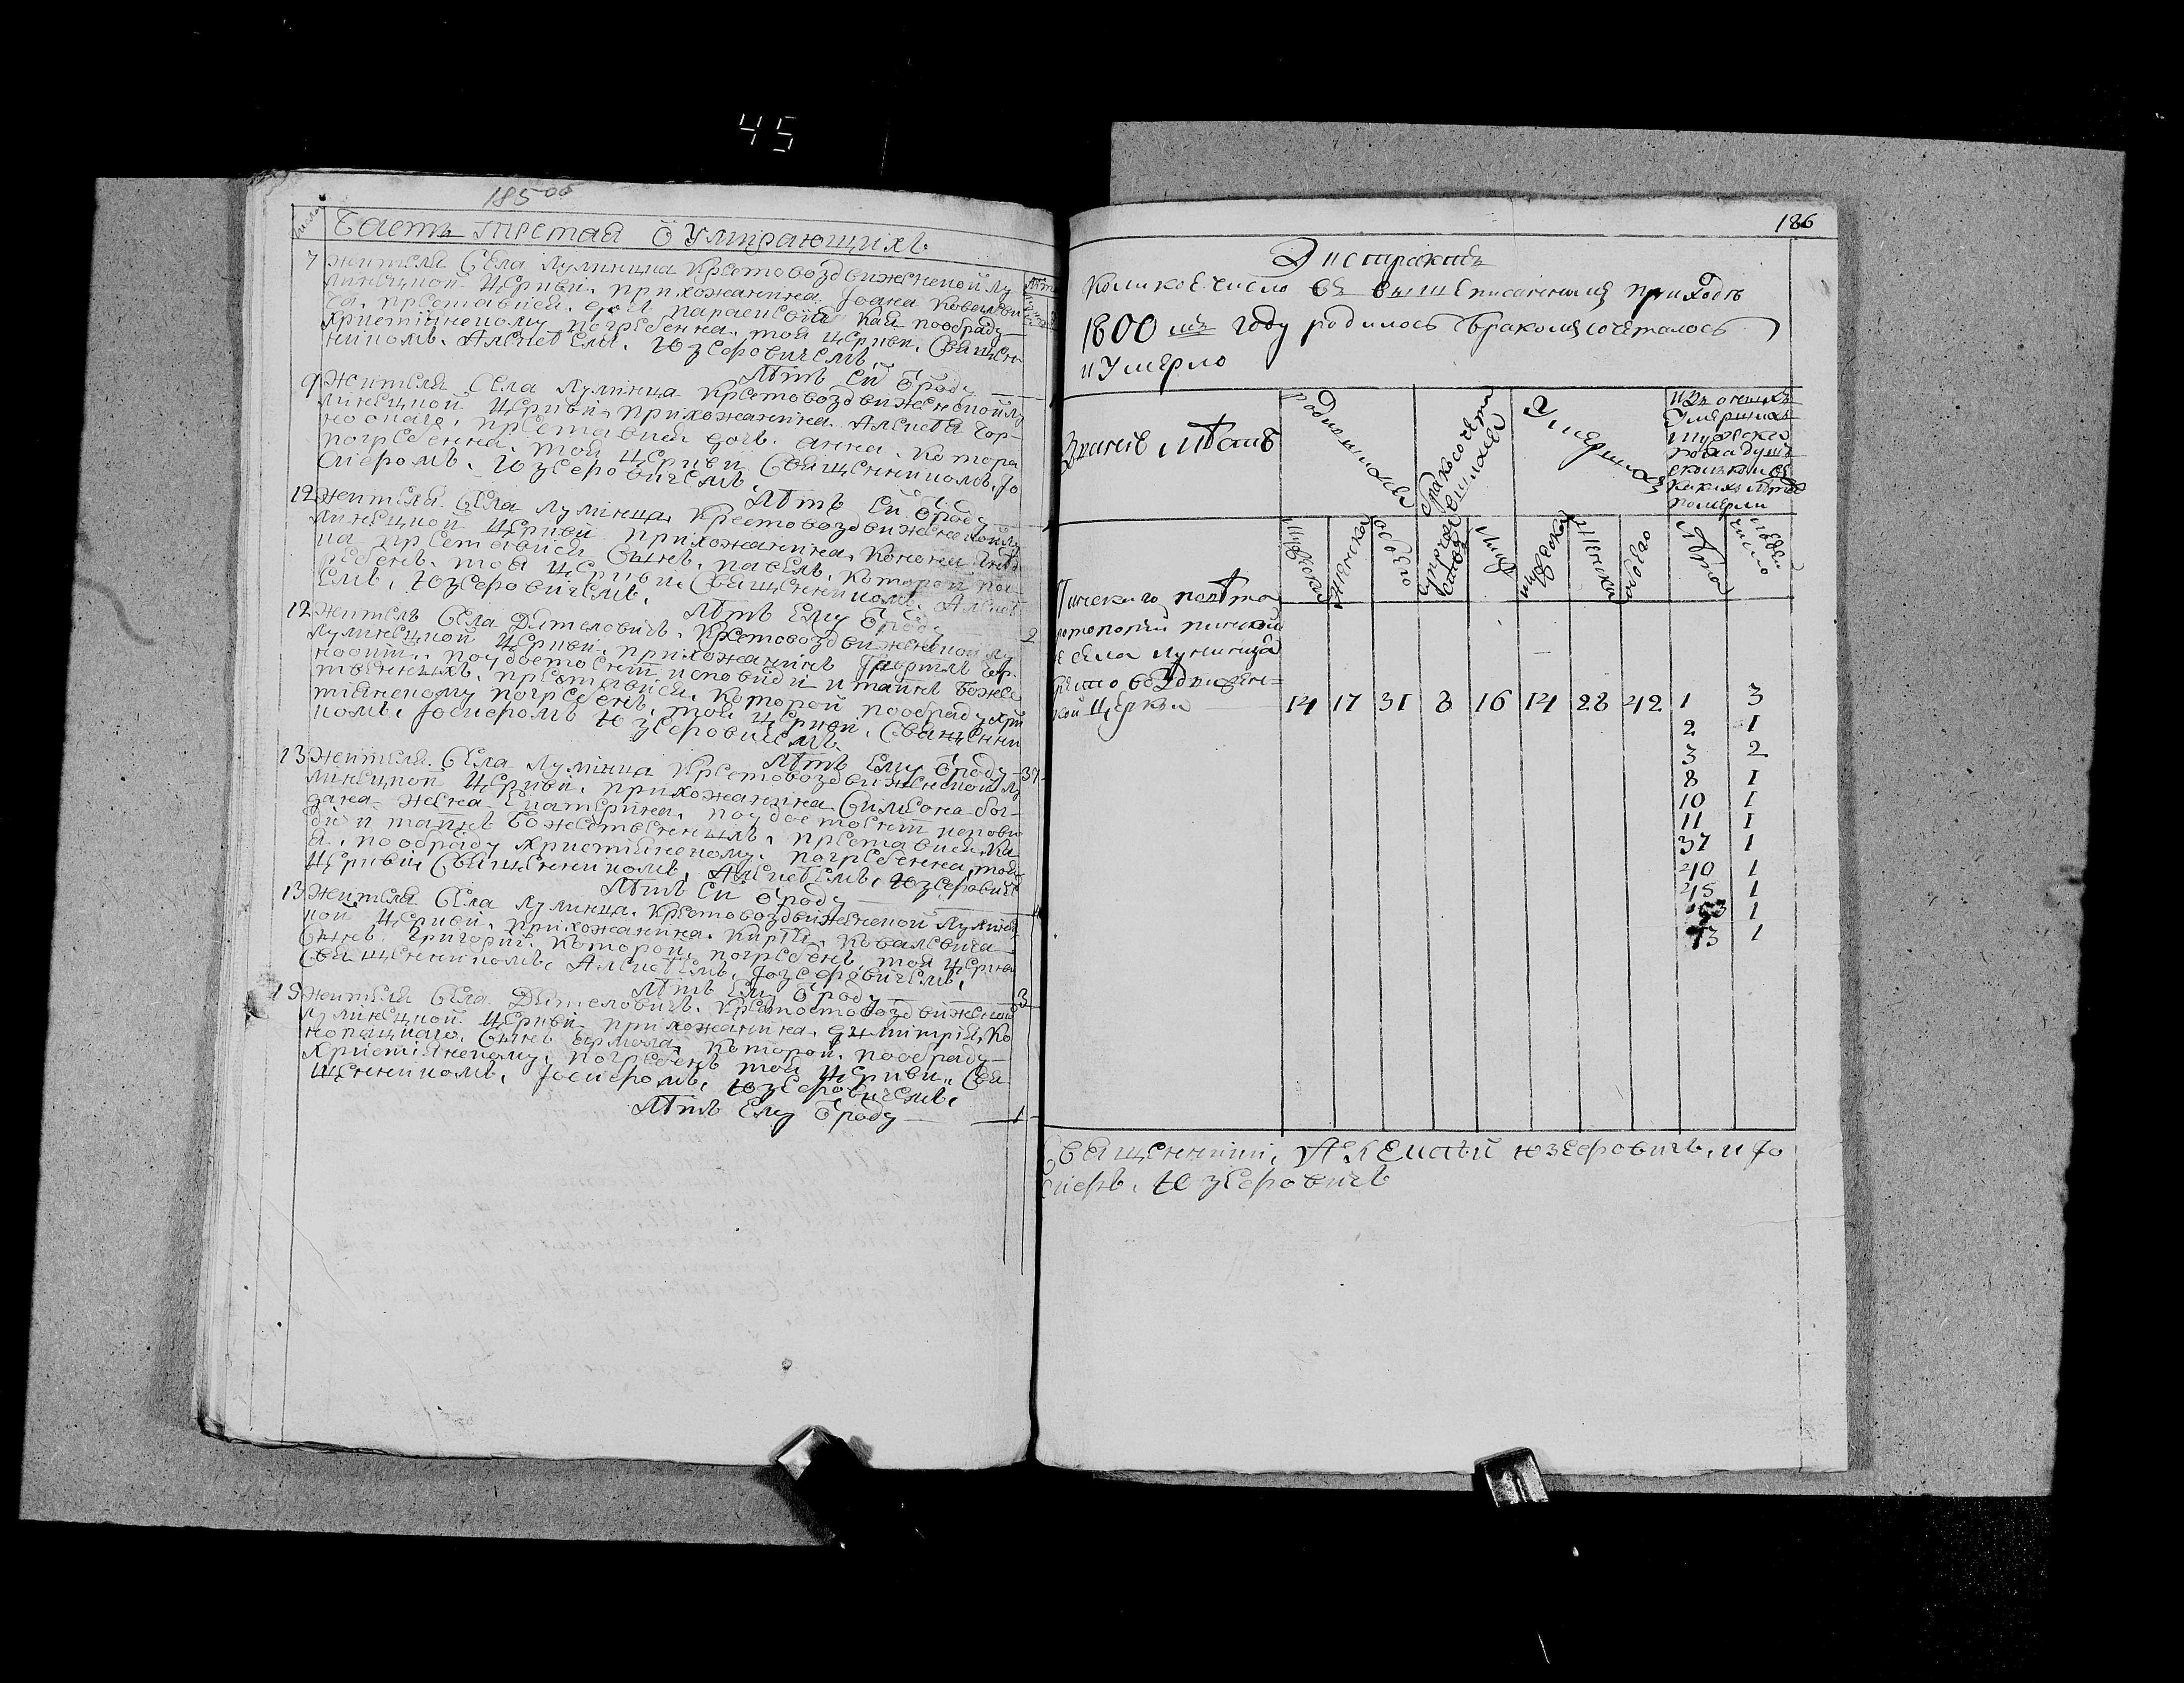 45
185 об
Число
Часть третая о Умирающихъ
Лѣта
7 Жителя Села Лулинца Крестовоздвиженской Лу
линецкой Церкви. прихожанина Іоана Ковалеви
ча. преставися. дочь параскевия Кая пообряду
Християнскому погребенна. той церкви. Священ
никомъ. Алексѣемъ. Юзефовичемъ
Лѣтъ Ей ѿроду
9 Жителя Села Лулинца Крестовоздвиженской Лу
линецкой Церкви. прихожанина. Алексѣя Гор-
преставися дочь. анна. Котора
погребенна. той церкви Священникомъ. Іо
сифомъ. Юзефовичемъ
Лѣтъ Ей ѿроду
12 Жителя. Села Лулинца, Крестовоздвиженской Лу
линецкой Церкви прихожанина.
преставися Сынъ. павелъ. Которой пог
ребенъ. той церкви Священникомъ. Алексѣ
емъ. Юзефовичемъ.
Лѣтъ Ему ѿроду 2
12 Житель Села Дятеловичь. Крестовоздвиженской Лу
лулинецкой Церкви. прихожанинъ Гавриилъ
поудостоеніи исповѣди и таинъ Боже
твенныхъ. преставися. Которой пообряду хри
тиянскому погребенъ. той церкви. Священни
комъ. Іосифомъ Юзефовичемъ
Лѣтъ Ему ѿроду 37
13 Жителя. Села Лулинца Крестовоздвиженской Лу
линецкой Церкви. прихожанина Симеона бог-
дана жена Екатерина. поудостоеніи исповѣ
ди и таинъ Божественныхъ. преставися. Ка
я. пообряду Християнскому. погребенна, той
Церкви Священникомъ. Алексѣемъ. Юзефовиче
Лѣтъ Ей ѿроду
13 Жителя Села Лулинца. Крестовоздвиженской Лулинец
кой Церкви. прихожанина. Кирѣя. Ковалевича
Сынъ Григорій. Которой. погребенъ той церкви
Священникомъ. Алексѣемъ. Іозефовичемъ.
Лѣтъ Ему ѿроду 3
15 Жителя Села Дятеловичь. Крестовоздвиженской
Лулинецкой Церкви. прихожанина. Димитрія. Ко
нопацкаго. Сынъ ермола. Которой. пообряду
Християнскому. погребенъ той Церкви. Свя
щенникомъ. Іосифомъ. Юзефовичемъ.
Лѣтъ Ему ѿроду 1
186
Экстрактъ
Коликое число въ вышеписанномъ приходѣ
1800мъ году родилось бракомъ сочеталось
и Умерло
Званіе мѣстъ
родившихся
бракосочетавшихся
Умершихъ
изъ оныхъ
Умершихъ
мужеска
пола душъ
сколько и въ
какихъ лѣтѣ
померли
мужеска
женска
обоего
супружества
лицъ
мужеска
женска
обоего
лѣта
число людей
Пинскаго повѣта
протопопіи пинской
села Лулинца
Кресто воздвижен=
ской Церкви 14 17 31 8 16 14 28 42 1 3
2 1
3 2
8 1
10 1
11 1
37 1
40 1
45 1
63 1
73 1
Священники, Алексѣй Юзефовичь, и Іо
сифъ, Юзефовичь